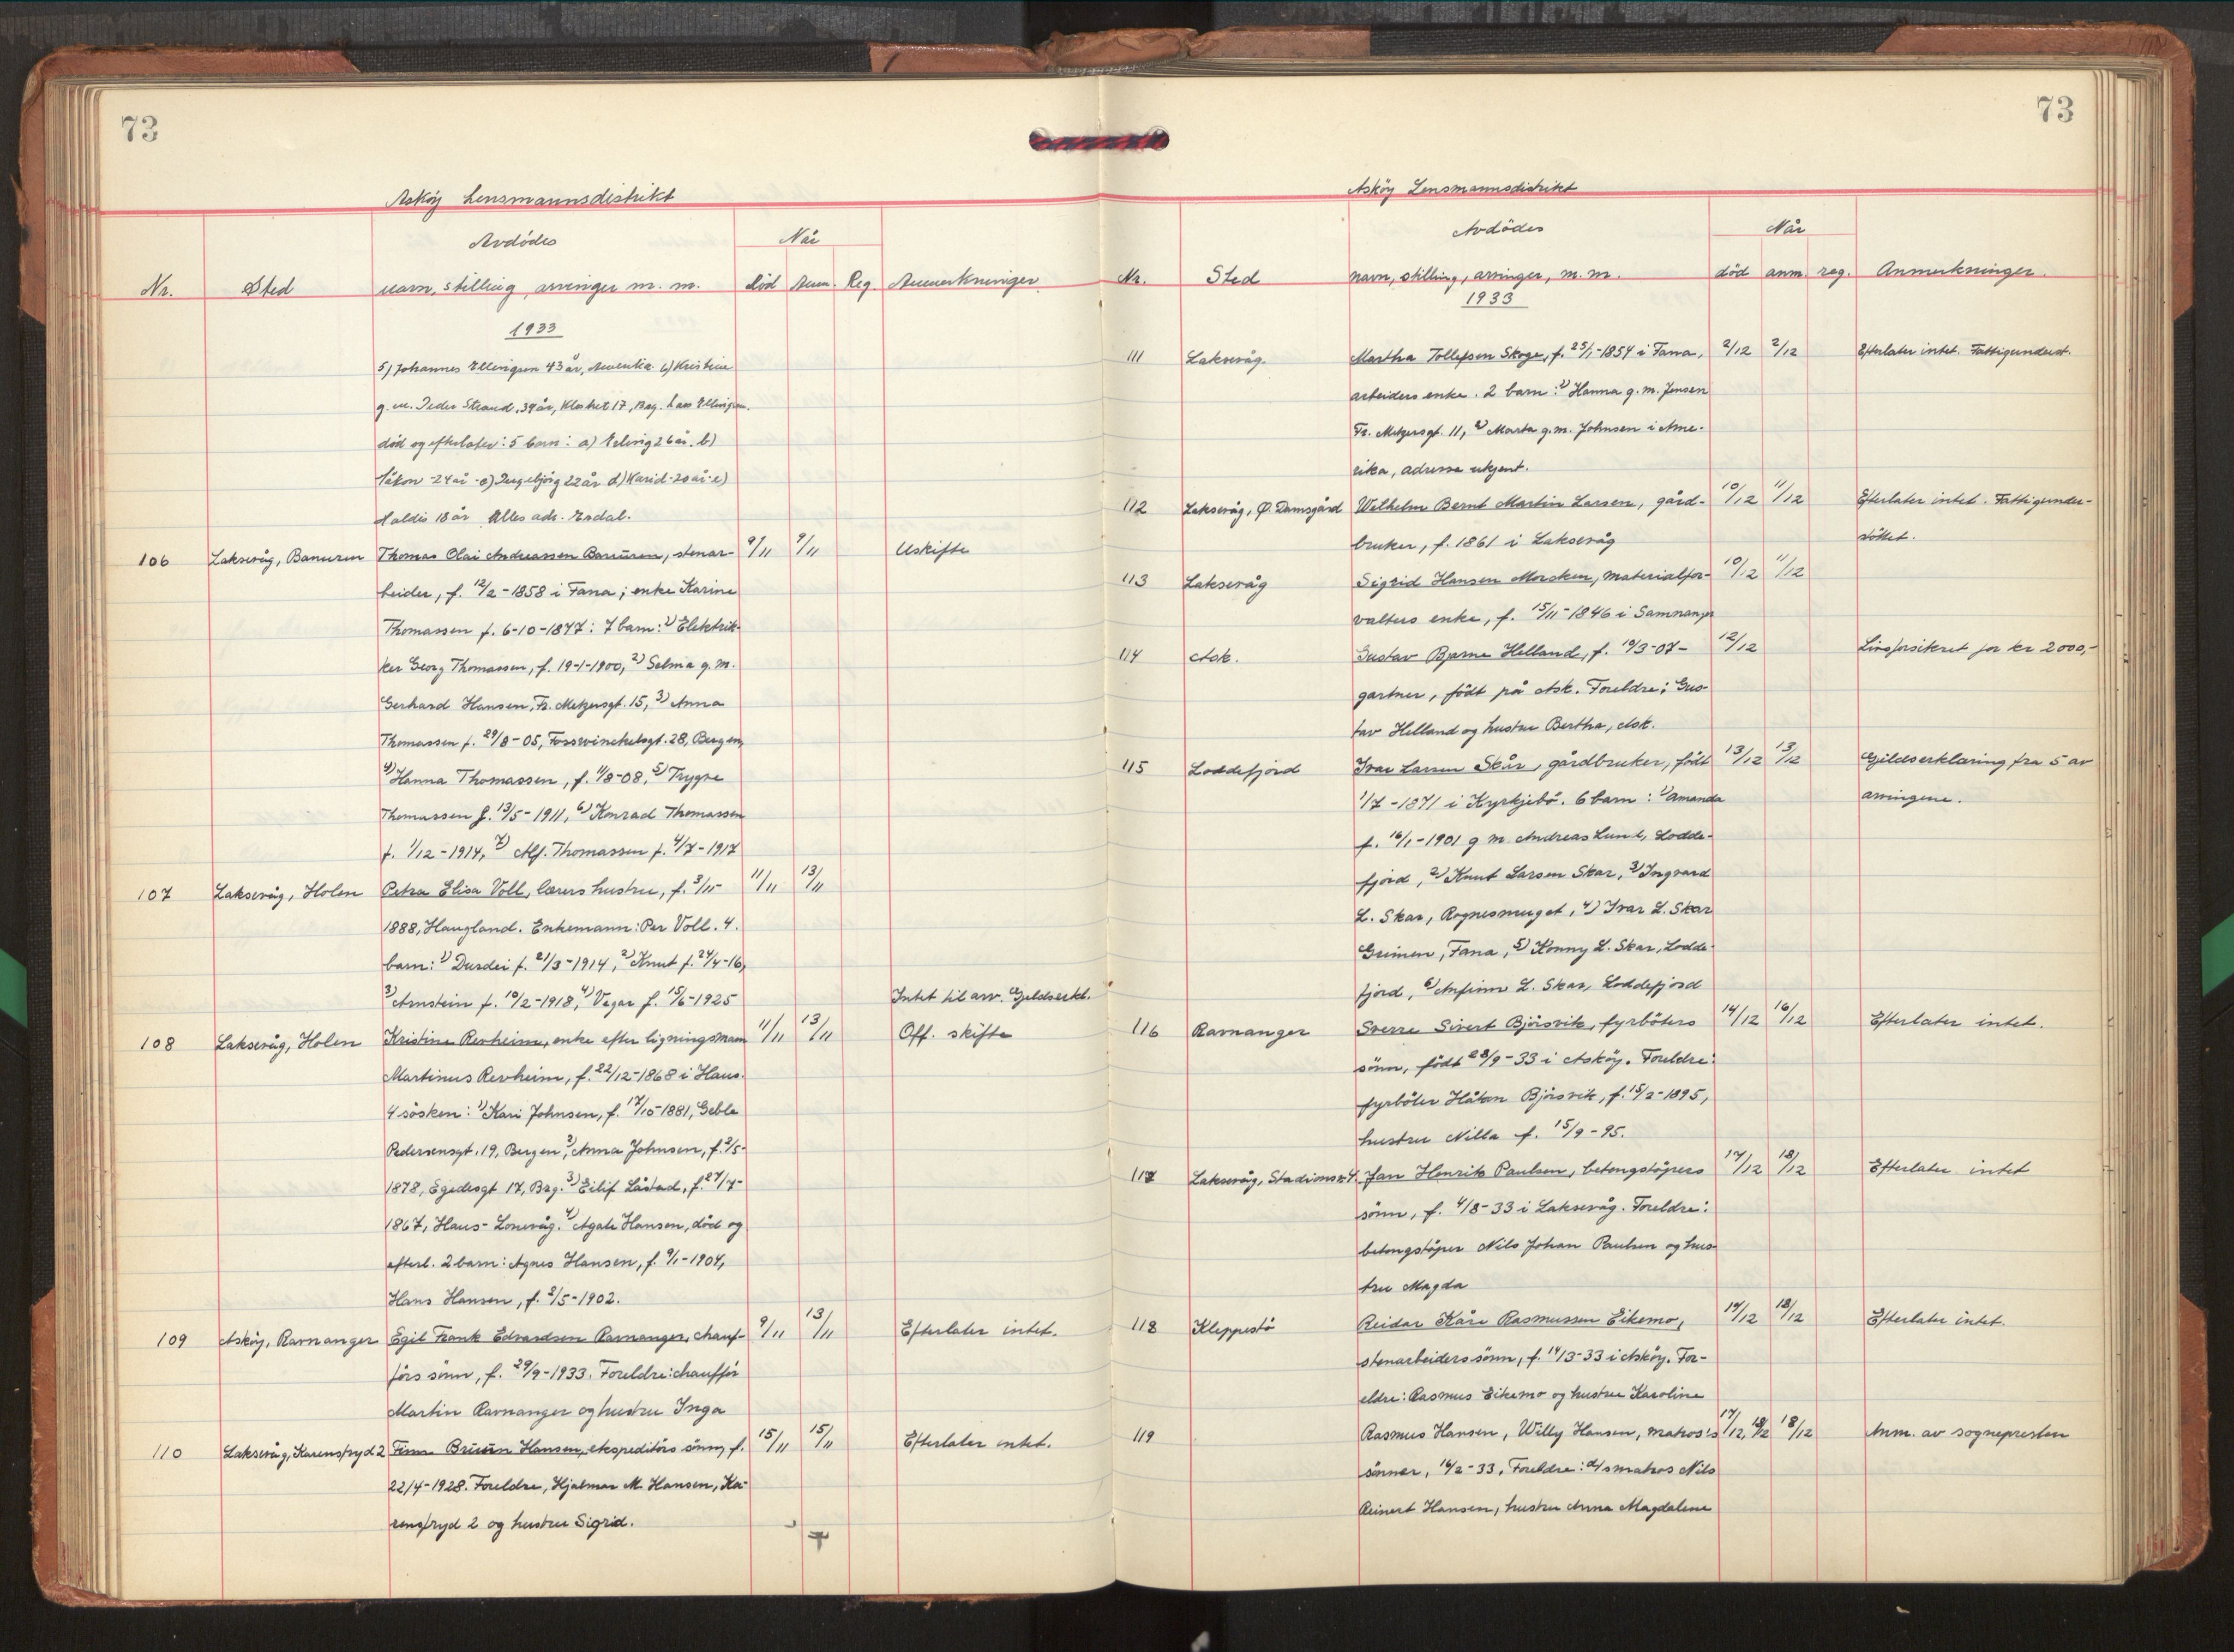 73
Askøy Lensmannsdistrikt
Avdødes
Når
Nr. Sted navn, stilling, arvinger m. m. død Anm. Reg. Anmerkninger
1933
5) Johannes Ellingsen 43 år, Amerika. 6) Kristine
g. m. Peder Strand, 39 år, Klostret 17, Brg. Lars Ellingsen.
død og efterlater: 5 barn: a) Erling 26 år. b)
Håkon 24 år - c) Ingebjørg 22 år d) Karid - 20 år - e)
Haldis 18 år Alles adr. Erdal.
106 Laksevåg, Banuren Thomas Olai Andreassen Banuren, stenar- 9/11 9/11 Uskifte
beider, f. 12/2 - 1858 i Fana; enke Karine
Thomassen f. 6-10-1877: 7 barn: 1) Elektrik-
ker Georg Thomassen, f. 19-1-1900, 2) Selma g. m.
Gerhard Hansen, Fr. Metzersgt. 15, 3) Anna
Thomassen f. 29/8 - 05, Fosswinckelsgt. 28, Bergen,
4) Hanna Thomassen, f. 4/8-08, 5) Trygve
Thomassen f. 13/5 - 1911, 6) Konrad Thomassen
f. 1/12 - 1914, 7) Alf. Thomassen f. 4/7 - 1917
107 Laksevåg, Holen Petra Elisa Voll, lærers hustru, f. 3/11- 11/11 13/11
1888, Haugland. Enkemann: Per Voll. 4.
barn: 1) Durdei f. 21/3 - 1914, 2) Knut f. 24/4 - 16,
3) Arnstein f. 10/2 - 1918, 4) Vegar f. 15/6 - 1925 Intet til arv. Gjeldserkl.
108 Laksevåg, Holen Kristine Revheim, enke efter ligningsmann 11/11 13/11 Off. skifte
Martinus Revheim, f. 22/12 - 1868 i Haus.
4 søsken: 1) Kari Johnsen, f. 17/10 - 1881, Geble
Pedersensgt. 19, Bergen, 2) Anna Johnsen, f. 2/5-
1878, Egedesgt 17, Brg. 3) Eilif Låstad, f. 27/7-
1867, Haus - Lonevåg. 4) Agate Hansen, død og
efterl. 2 barn: Agnes Hansen, f. 9/1 - 1904,
Hans Hansen, f. 2/5 - 1902.
109 Askøy, Ravnanger Egil Frank Edvardsen Ravnanger, chauf- 9/11 13/11 Efterlater intet.
førs sønn, f. 29/9 - 1933. Foreldre: chauffør
Martin Ravnanger og hustru Inga
110 Laksevåg, Karenstryd 2 Finn Bruun Hansen, ekspeditørs sønn, f. 15/11 15/11 Efterlater intet.
22/4 - 1928. Foreldre, Hjalmar M. Hansen, Ka-
renstryd 2 og hustru Sigrid.
73
Askøy Lensmannsdistrikt
Avdødes
Når
Nr. Sted navn, stilling, arvinger, m. m. død anm. reg. Anmerkninger.
1933
111 Laksevåg. Martha Tollefsen Skoge, f. 25/1 - 1854 i Fana, 2/12 2/12 Efterlater intet. Fattigunderst.
arbeiders enke. 2 barn: 1) Hanna g. m. Jensen
Fr. Metzersgt. 11, 2) Marta g. m. Johnsen i Ame-
rika, adresse ukjent.
112 Laksevåg, Ø. Damsgård Wilhelm Bernt Martin Larsen, gård- 10/12 11/12 Efterlater intet. Fattigunder-
bruker, f. 1861 i Laksevåg støttet.
113 Laksevåg Sigrid Hansen Morsken, materialfor- 10/12 11/12
valters enke, f. 15/11 - 1846 i Samnanger
114 Ask. Gustav Bjarne Helland, f. 10/3 - 07 - 12/12 Livsforsikret for kr 2000,-
gartner, født på Ask. Foreldre: Gus-
tav Helland og hustru Bertha, Ask.
115 Loddefjord Ivar Larsen Skår, gårdbruker, født 13/12 13/12 Gjeldserklæring fra 5 av
1/7 - 1871 i Kyrkjebø. 6 barn: 1) Amanda arvingene.
f. 16/1 - 1901 g m. Andreas Lund, Lodde-
fjord, 2) Knut Larsen Skar, 3) Ingvard
L. Skar, Rognesmuget, 4) Ivar L. Skar
Grimen, Fana, 5) Konny L. Skar, Lodde-
fjord, 6) Anfinn L. Skar, Loddefjord
116 Ravnanger Sverre Sivert Bjørsvik, fyrbøters 14/12 16/12 Efterlater intet.
sønn, født 28/9 - 33 i Askøy. Foreldre:
fyrbøter Håkon Bjørsvik, f. 15/2 - 1895,
hustru Nilla f. 15/9 - 95.
117 Laksevåg, Stadionsv. 4. Jan Henrik Paulsen, betongstøpers 17/12 18/12 Efterlater intet
sønn, f. 4/8 - 33 i Laksevåg. Foreldre:
betongstøper Nils Johan Paulsen og hus-
tru Magda
118 Kleppestø Reidar Kåre Rasmussen Eikemo, 17/12 18/12 Efterlater intet.
stenarbeiders sønn, f. 14/3 - 33 i Askøy. For-
eldre: Rasmus Eikemo og hustru Karoline
119 Rasmus Hansen, Willy Hansen, matros's 17/12, 18/12 18/12 Anm. av sognepresten
sønner, 16/2 - 33, Foreldre: matros Nils
Reinert Hansen, hustru Anna Magdalene